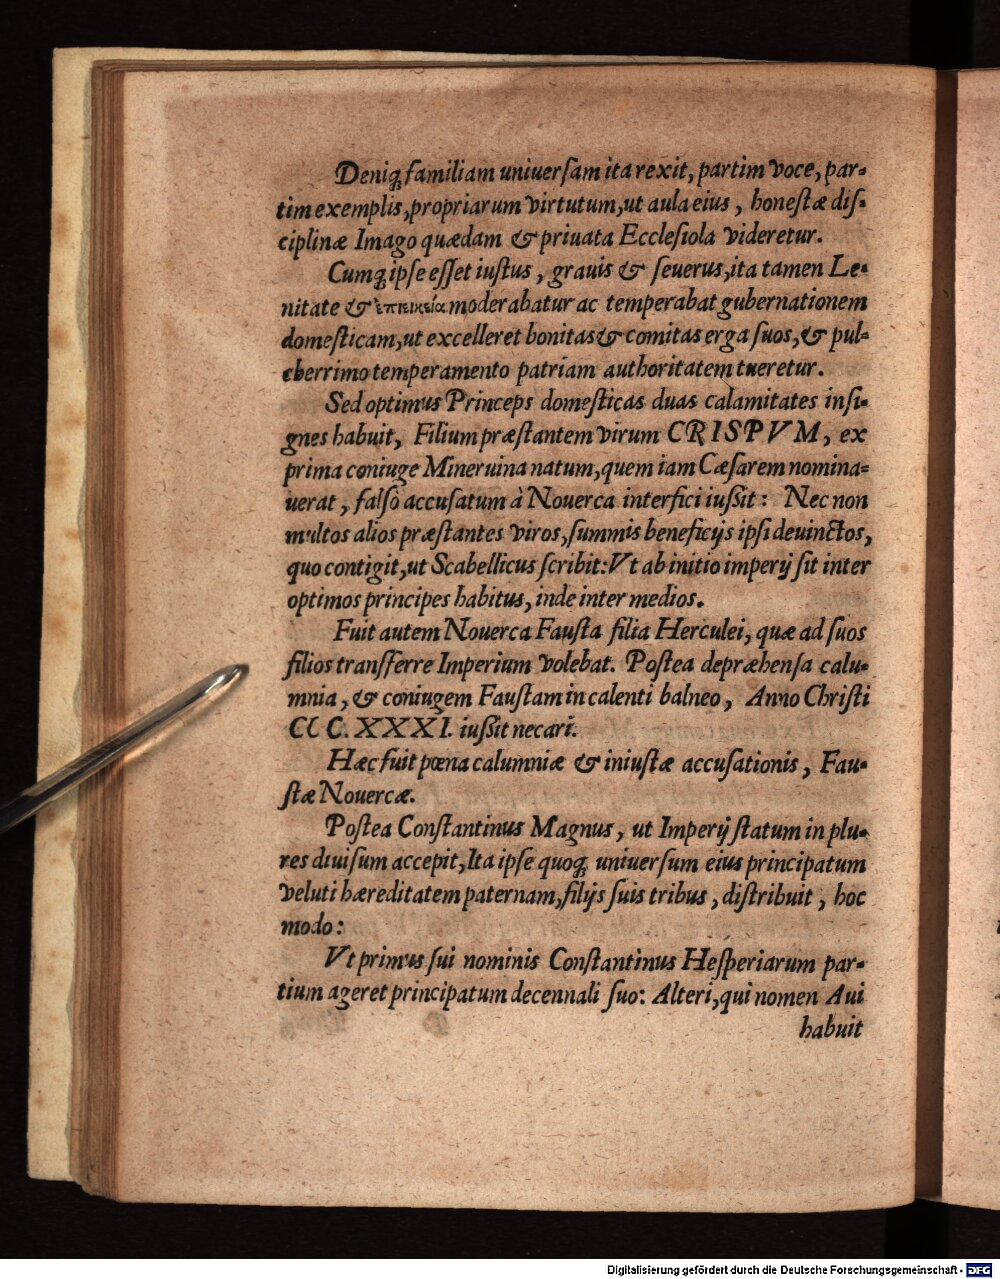 Deniq; familiam uniuerſam ita rexit, partim voce, par-
tim exemplis, propriarum virtutum, ut aula eius, honeſtæ diſ-
ciplinæ Imago quædam & priuata Eccleſiola videretur.
Cumq; ipſe eſſet iuſtus, grauis & ſeuerus, ita tamen Le-
nitate & ἐπιεικεία moderabatur ac temperabat gubernationem
domeſticam, ut excelleret bonitas & comitas erga ſuos, & pul-
cherrimo temperamento patriam authoritatem tueretur.
Sed optimus Princeps domeſticas duas calamitates inſi-
gnes habuit, Filium præſtantem virum CRISPVM, ex
prima coniuge Mineruina natum, quem iam Cæſarem nomina-
uerat, falſò accuſatum à Nouerca interfici iuſsit: Nec non
multos alios præſtantes viros, ſummis beneficijs ipſi deuinctos,
quo contigit, ut Scabellicus ſcribit: Vt ab initio imperij ſit inter
optimos principes habitus, inde inter medios.
Fuit autem Nouerca Fauſta filia Herculei, quæ ad ſuos
filios transferre Imperium volebat. Poſtea depræhenſa calu-
mnia, & coniugem Fauſtam in calenti balneo, Anno Chriſti
CCC. XXXI. iuſsit necari.
Hæc fuit pœna calumniæ & iniuſtæ accuſationis, Fau-
ſtæ Nouercæ.
Poſtea Conſtantinus Magnus, ut Imperij ſtatum in plu-
res diuiſum accepit, Ita ipſe quoq; uniuerſum eius principatum
veluti hæreditatem paternam, filijs ſuis tribus, diſtribuit, hoc
modo:
Vt primus ſui nominis Conſtantinus Heſperiarum par-
tium ageret principatum decennali ſuo: Alteri, qui nomen Aui
habuit
Digitalisierung gefördert durch die Deutsche Forschungsgemeinschaft - DFG